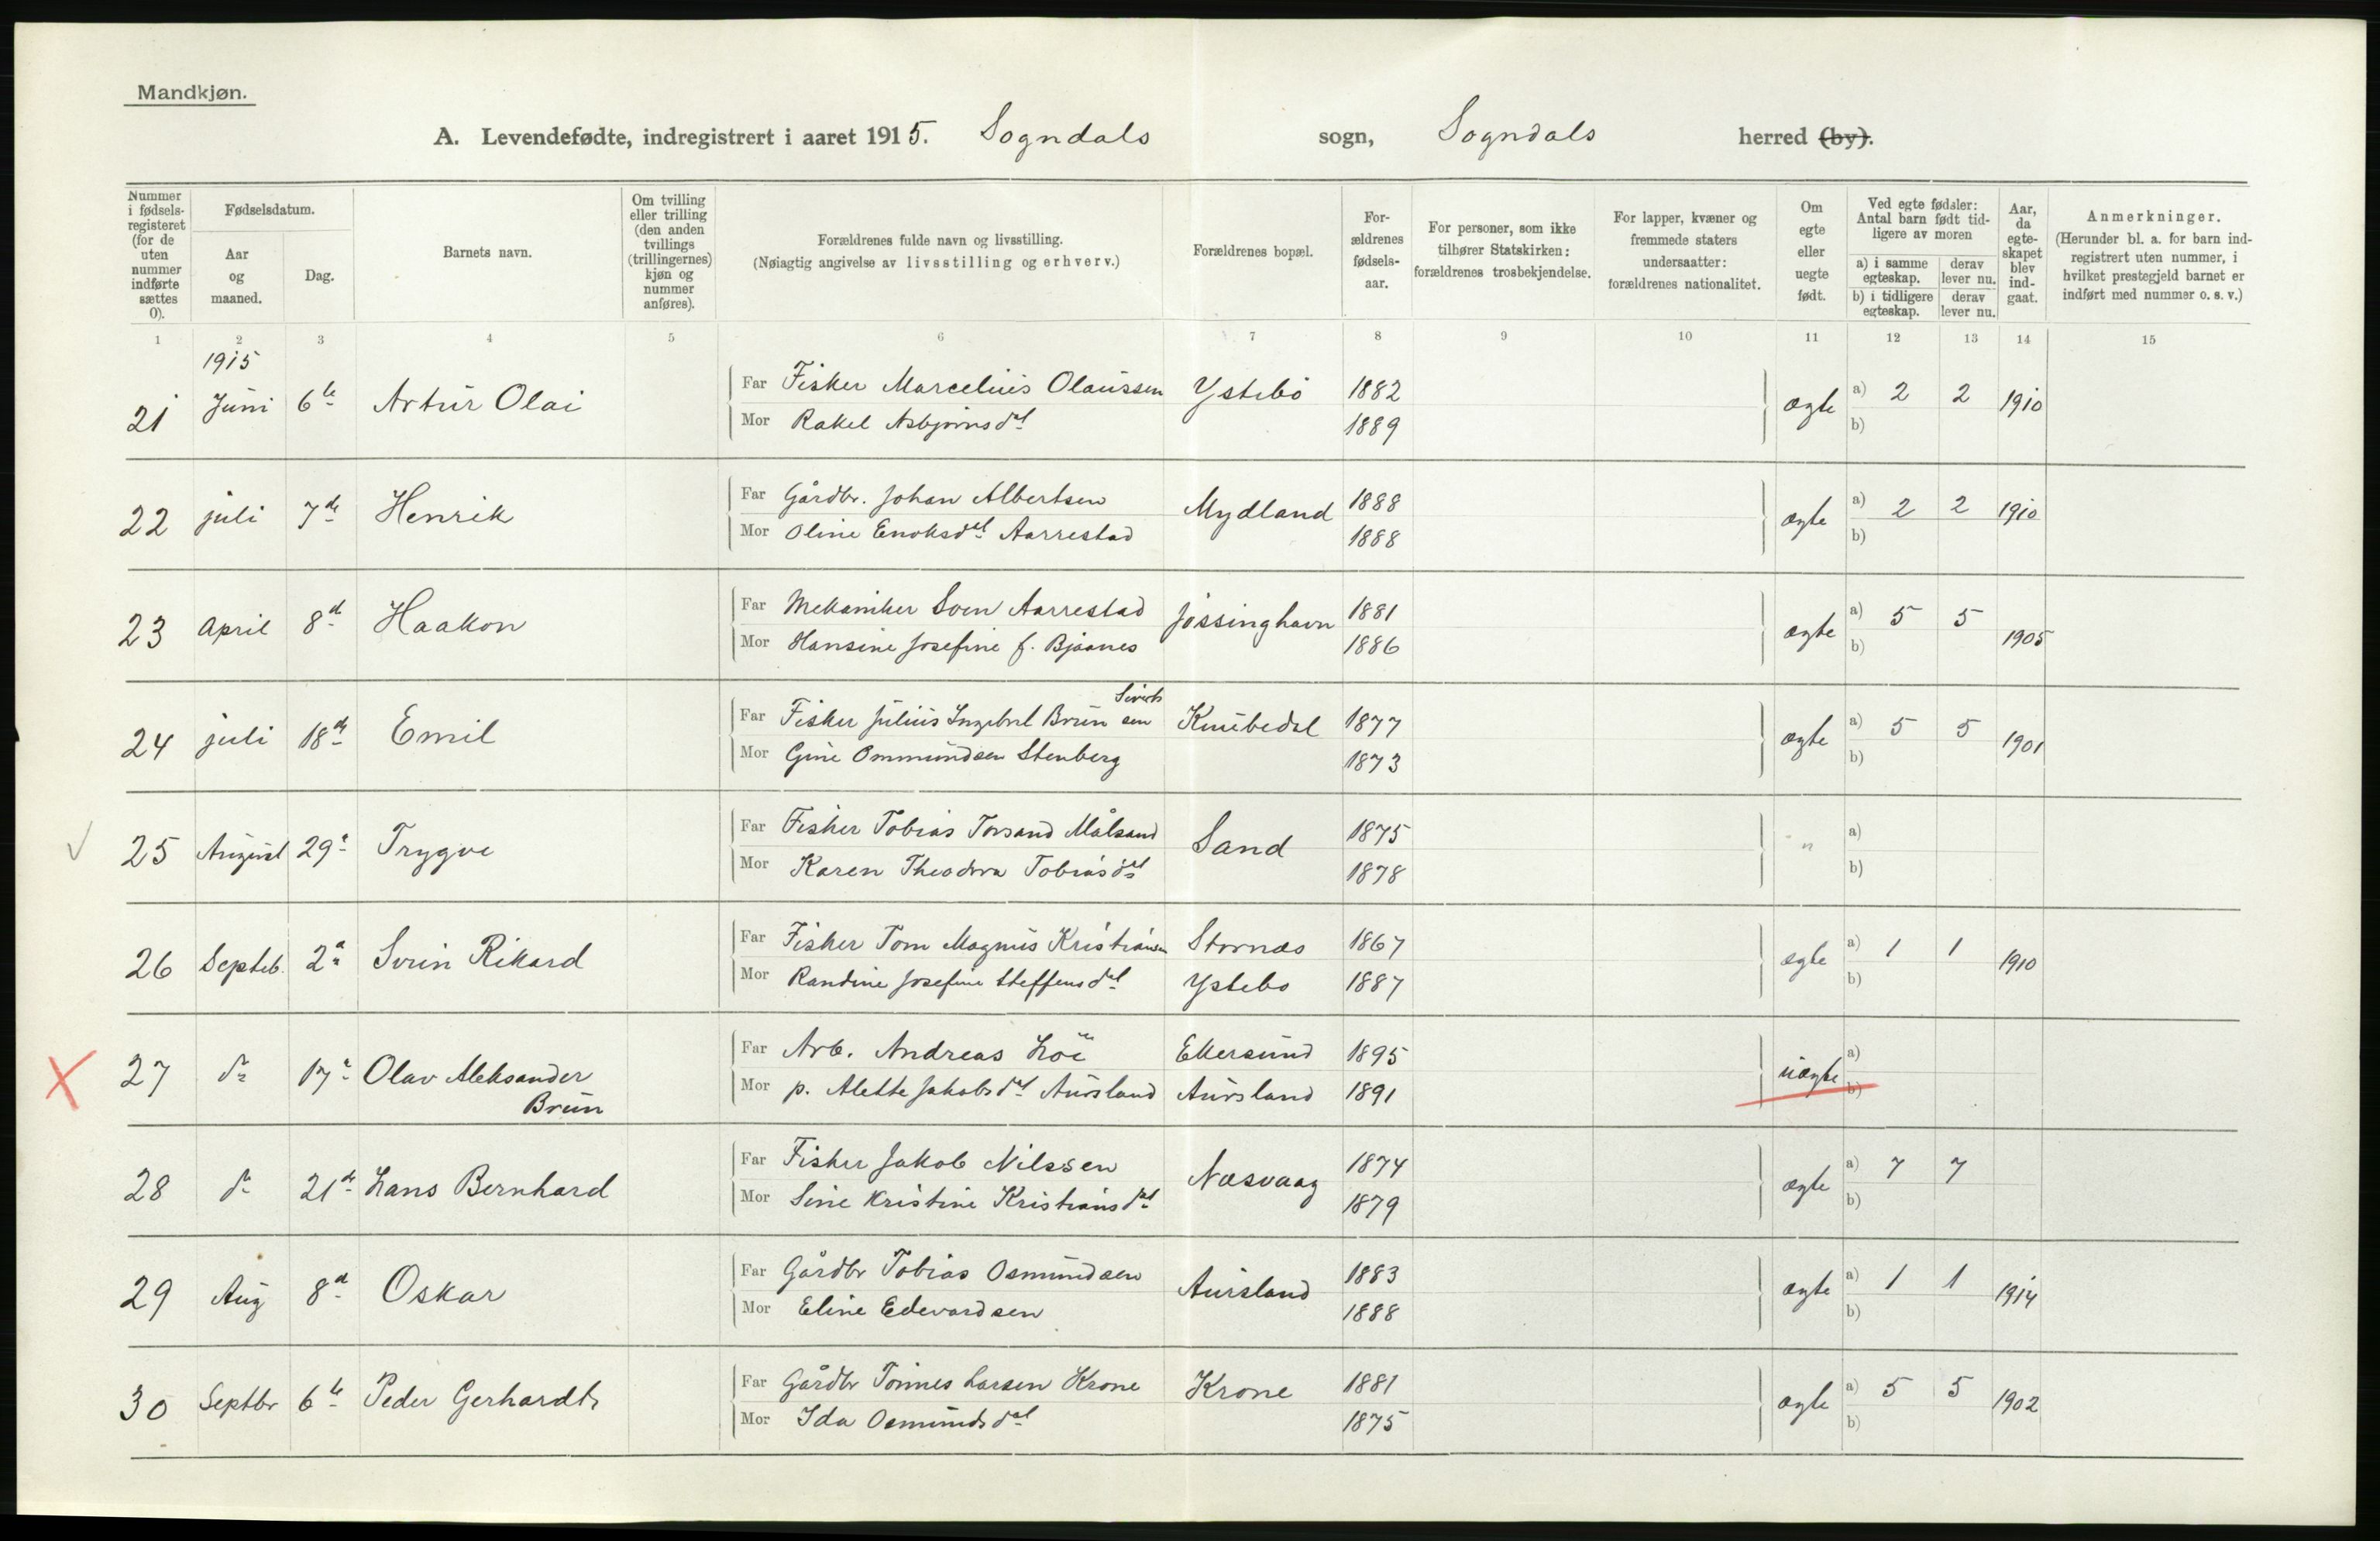 Mandkjøn.
A. Levendefødte, indregistrert i aaret 1915. Sogndals sogn, Sogndals herred (by).
Nummer i fødselsregisteret (for de uten nummer indførte sættes 0).
Fødselsdatum.
Aar og maaned.
Dag.
Barnets navn.
Om tvilling eller trilling (den anden tvillings (trillingernes) kjøn og nummer anføres).
Forældrenes fulde navn og livsstilling.
(Nøiagtig angivelse av livsstilling og erhverv.)
Forældrenes bopæl.
Forældrenes fødselsaar.
For personer, som ikke tilhører Statskirken: forældrenes trosbekjendelse.
For lapper, kvæner og fremmede staters undersaatter: forældrenes nationalitet.
Om egte eller uegte født.
Ved egte fødsler: Antal barn født tidligere av moren
a) i samme egteskap. derav lever nu.
b) i tidligere egteskap. derav lever nu.
Aar, da egteskapet blev indgaat.
Anmerkninger.
(Herunder bl. a. for barn indregistrert uten nummer, i hvilket prestegjeld barnet er indført med nummer o. s. v.)
1 2 3 4 5 6 7 8 9 10 11 12 13 14 15
1915
21 Juni 6te Artur Olai Far Fisker Marcelius Olaussen Ystebö 1882 ægte a) 2 2 1910
Mor Rakel Asbjörnsdtl 1889 b)
22 juli 7de Henrik Far Gårdbr. Johan Albertsen Mydland 1888 ægte a) 2 2 1910
Mor Oline Enoksdtl Aarrestad 1888 b)
23 April 8d Haakon Far Mekaniker Sven Aarrestad Jössinghavn 1881 ægte a) 5 5 1905
Mor Hansine Josefine f. Bjaanes 1886 b)
Siverts
24 juli 18de Emil Far Fisker Julius Ingebret Brun sen Knubedal 1877 ægte a) 5 5 1901
Mor Gine Ommundsen Stenberg 1873 b)
25 August 29d Trygve Far Fisker Tobias Torsand Målsand Sand 1875 " a)
Mor Karen Theodora Tobiasdtl 1878 b)
26 Septeb. 2d Svein Rikard Far Fisker Tom Magnus Kristiansen Stornæs 1867 egte a) 1 1 1910
Mor Randine Josefine Steffensdtl Ystebø 1887 b)
27 do 17d Olav Aleksander Brun Far Arb. Andreas Löe Ekersund 1895 uægte a)
Mor p. Alette Jakobsdtl Aursland Aursland 1891 b)
28 do 21de Hans Bernhard Far Fisker Jakob Nilssen Næsvaag 1874 ægte a) 7 7
Mor Sine Kristine Kristiansdtl 1879 b)
29 Aug 8d Oskar Far Gårdbr Tobias Osmundsen Aursland 1883 ægte a) 1 1 1914
Mor Eline Edevardsen 1888 b)
30 Septbr 6te Peder Gerhardt Far Gårdbr Tönnes Larsen Krone Krone 1881 ægte a) 5 5 1902
Mor Ida Osmundsdtl 1875 b)